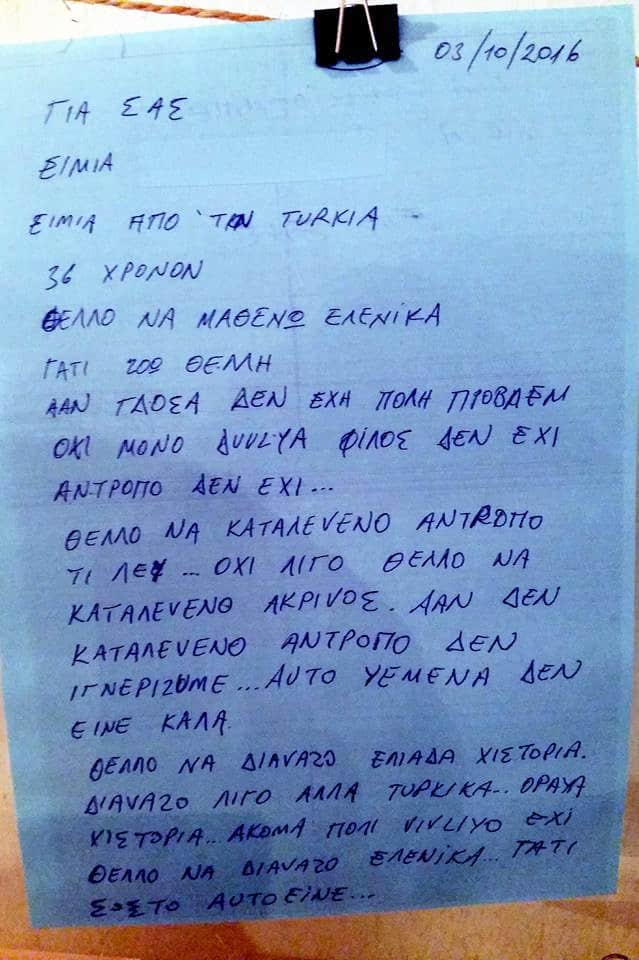 03/10/2016
ΓΙΑ ΣΑΣ
ΕΙΜΙΑ
ΕΙΜΙΑ ΑΠΟ ΤΗΝ TURKIA
36 ΧΡΟΝΟΝ
ΘΕΛΛΟ ΝΑ ΜΑΘΕΝΩ ΕΛΕΝΙΚΑ
ΓΑΤΙ ΖΟΩ ΘΕΛΛΗ
ΑΑΝ ΓΛΟΣΑ ΔΕΝ ΕΧΗ ΠΟΛΗ ΠΡΟΒΛΕΜ
ΟΧΙ ΜΟΝΟ ΔUVLYA ΦΙΛΟΣ ΔΕΝ ΕΧΙ
ΑΝΤΡΟΠΟ ΔΕΝ ΕΧΙ...
ΘΕΛΛΟ ΝΑ ΚΑΤΑΛΕVΕΝΟ ΑΝΤRΟΠΟ
ΤΙ ΛΕΥ... ΟΧΙ ΛΙΓΟ ΘΕΛΛΟ ΝΑ
ΚΑΤΑΛΕVΕΝΘ ΑΚΡΙΝΟΣ. ΑΑΝ ΔΕΝ
ΚΑΤΑΛΕVΕΝΘ ΑΝΤΡΟΠΟ ΔΕΝ
ΙΓΝΕΡΙΖUΜΕ... ΑUΤΟ ΥΕΜΕΝΑ ΔΕΝ
ΕΙΝΕ ΚΑΛΑ.
ΘΕΛΛΟ ΝΑ ΔΙΑVΑΖΟ ΕΛΙΑΔΑ ΧΙΣΤΟΡΙΑ.
ΔΙΑVΑΖΟ ΛΙΓΟ ΑΛΛΑ TURKIKA.. ΟΡΑΥΑ
ΧΙΣΤΟΡΙΑ.. ΑΚΟΜΑ ΠΟΛΙ VIVLIYO ΕΧΙ
ΘΕΛΛΟ ΝΑ ΔΙΑVΑΖΟ ΕΛΕΝΙΚΑ... ΓΑΤΙ
ΣΟΣΤΟ ΑUΤΟ ΕΙΝΕ...